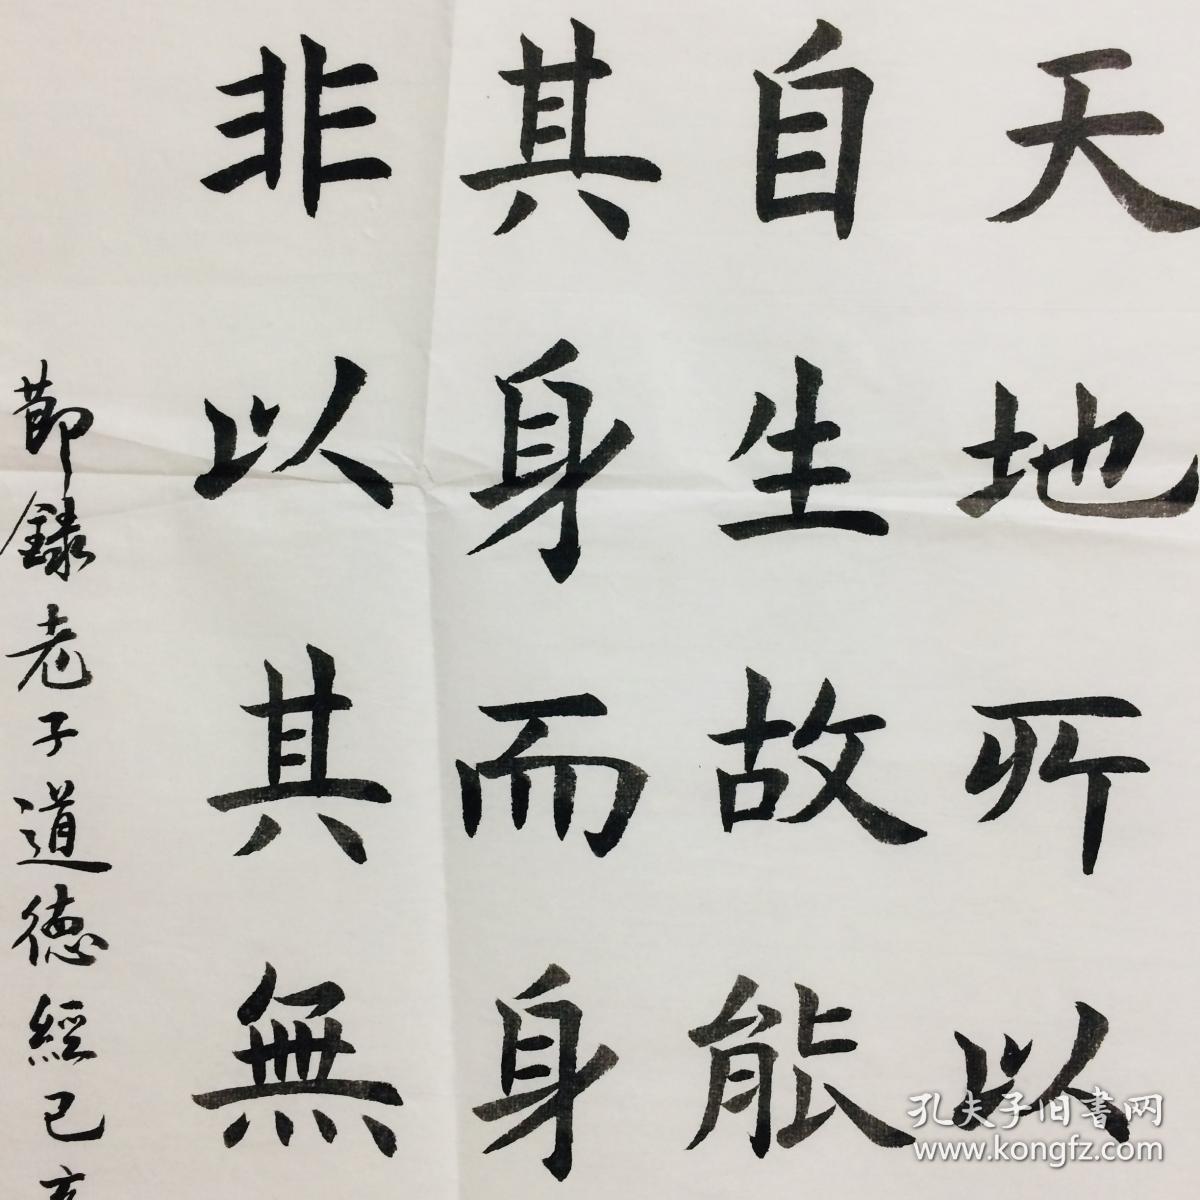 天地所以
自生故能
其身而身
非以其無
節錄老子道德經己亥
孔夫子旧书网
www.kongfz.com